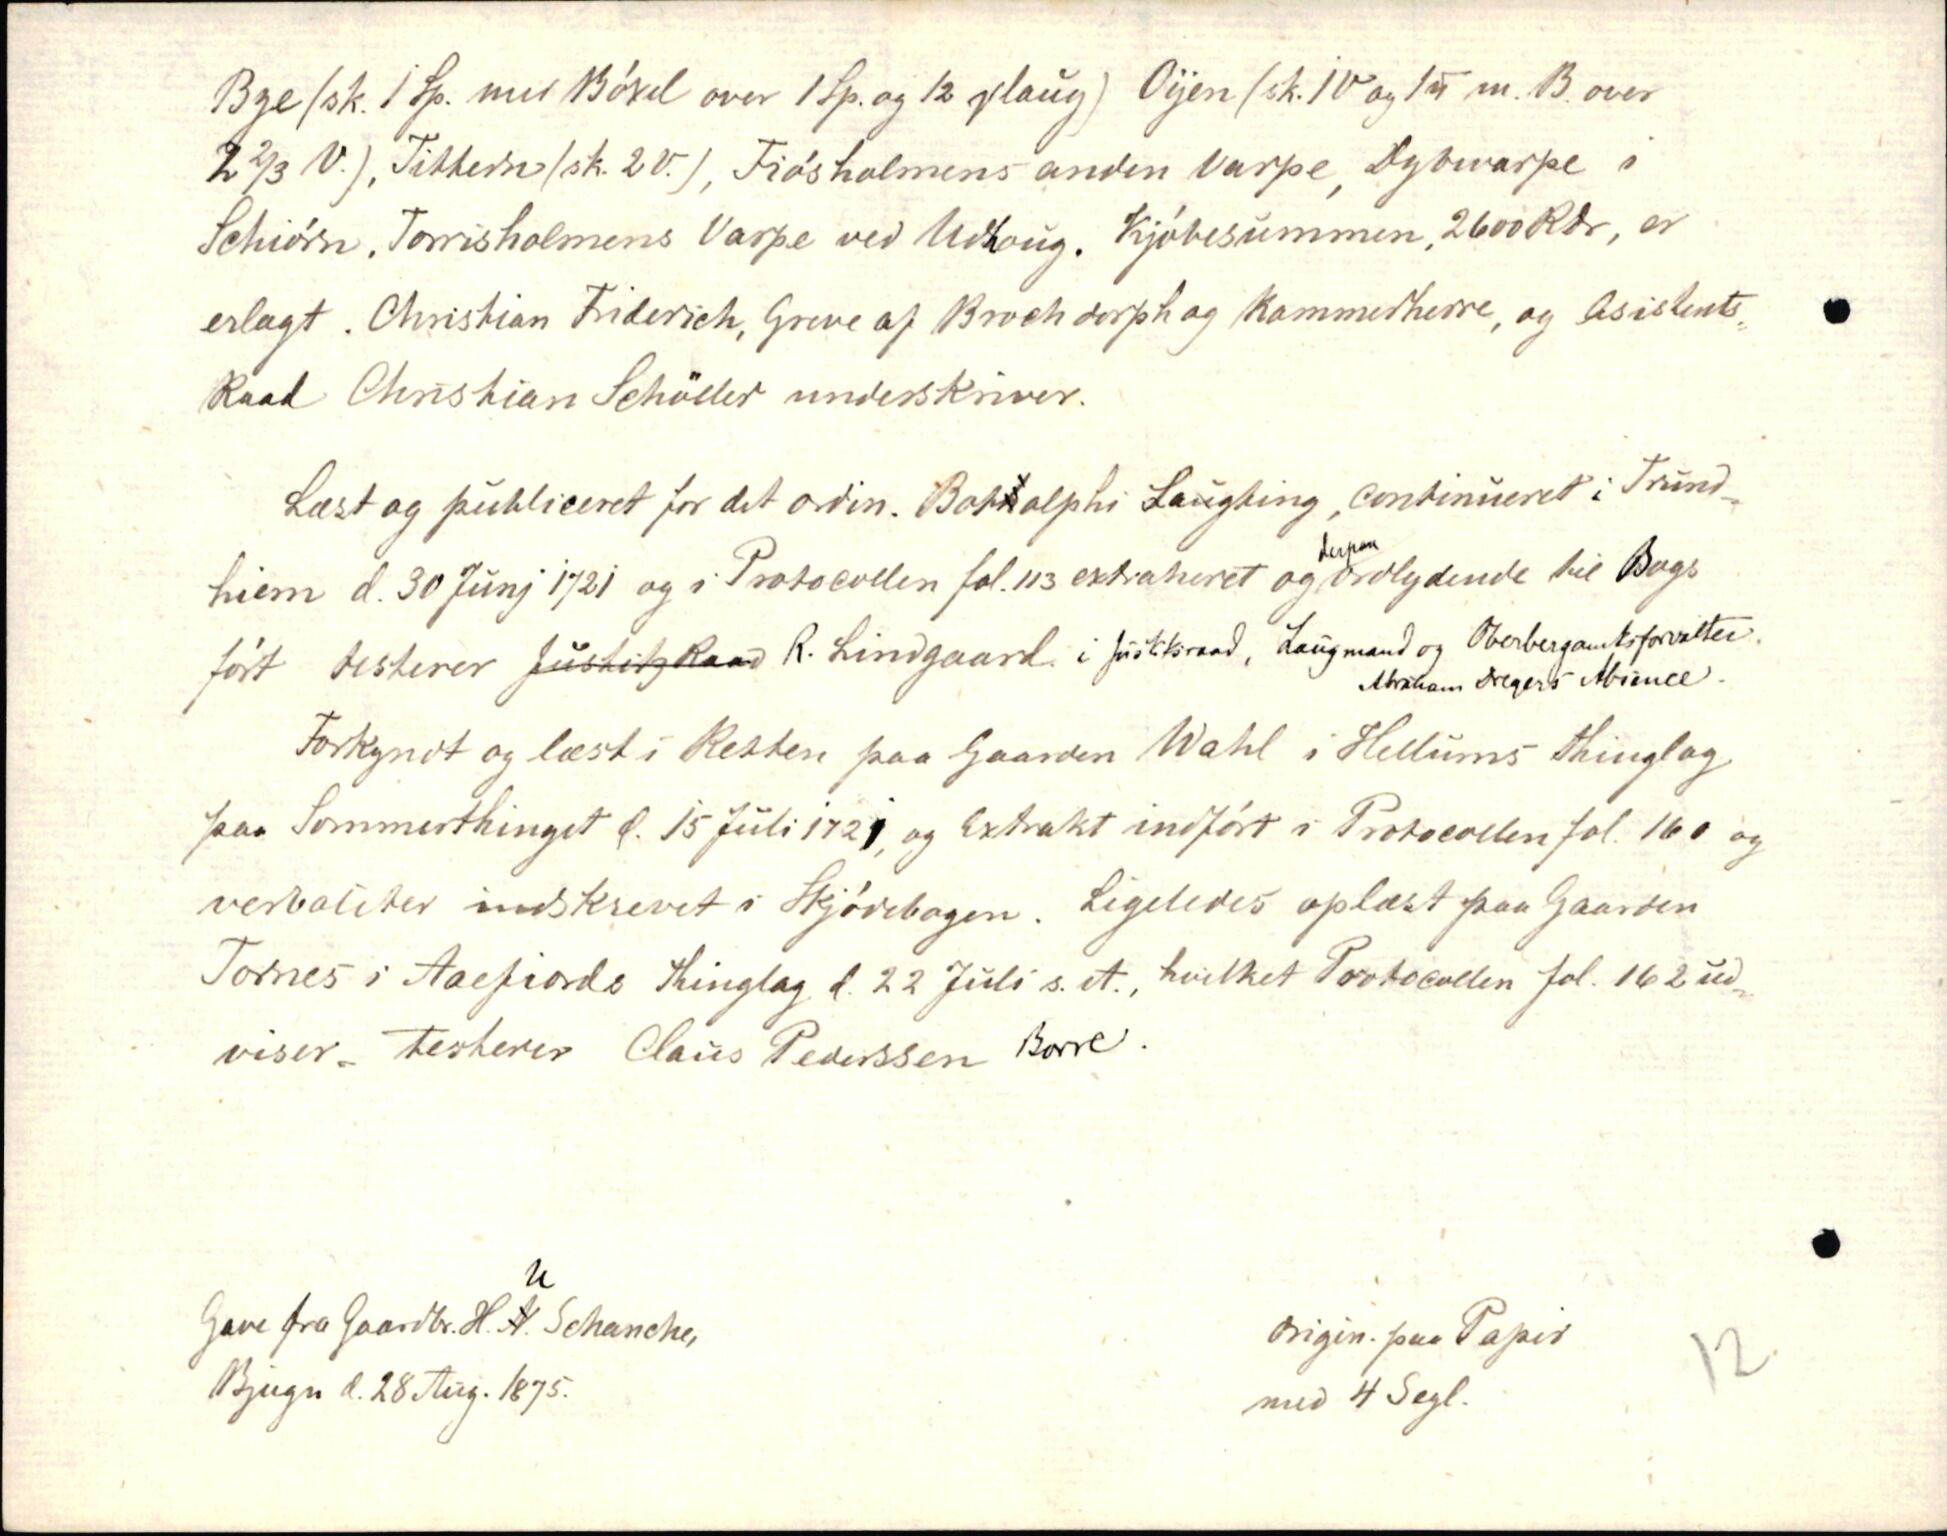 Bye (sk. 1 Sp. med Bóxel over 1 Sp. og 12 Maug) Oijen (sk. 1 V og 1 ℔ m. B. over
2 2/3 V.), Tittern (sk. 2 V.), Fiósholmens anden Varpe, Dybwarpe i
Schiórn, Torrisholmens Varpe ved Udhoug. Kjóbesummen, 2600 Rdr, er
erlagt. Christian Friderich, Greve af Brochdorph og Kammerherre, og Asistents-
Raad Christian Schöller underskriver.
Læst og publiceret for det ordin. Botolphi Laugting, continueret i Trund-
hiem d. 30 Junj 1721 og i Protocollen fol. 113 extraheret og derpaa ordlydende til Bogs
fórt testerer Justitz Raad R. Lindgaard. i Justitsraad, Laugmand og Oberbergamtsforvalter.
Abraham Dregers Abscence.
Forkyndt og læst i Retten paa Gaarden Wahl i Hellums thinglag
paa Sommerthinget d. 15 Juli 1721, og Extrakt indfórt i Protocollen fol. 160 og
verbaliter indskrevet i Skjódebogen. Ligeledes oplæst paa Gaarden
Tornes i Aaefiords thinglag d. 22 Juli s. A., hvilket Protocollen fol. 162 ud-
viser - testerer Claus Pederssen Borre.
Gave fra Gaardbr. H. U. Schanche,
Bjugn d. 28 Aug. 1875.
Origin. paa Papir
med 4 Segl.
12